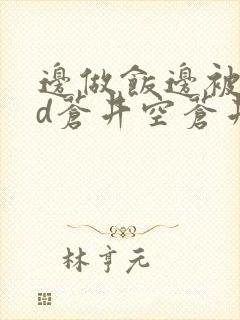 邊做飯邊被
d蒼井空蒼井
林亨元